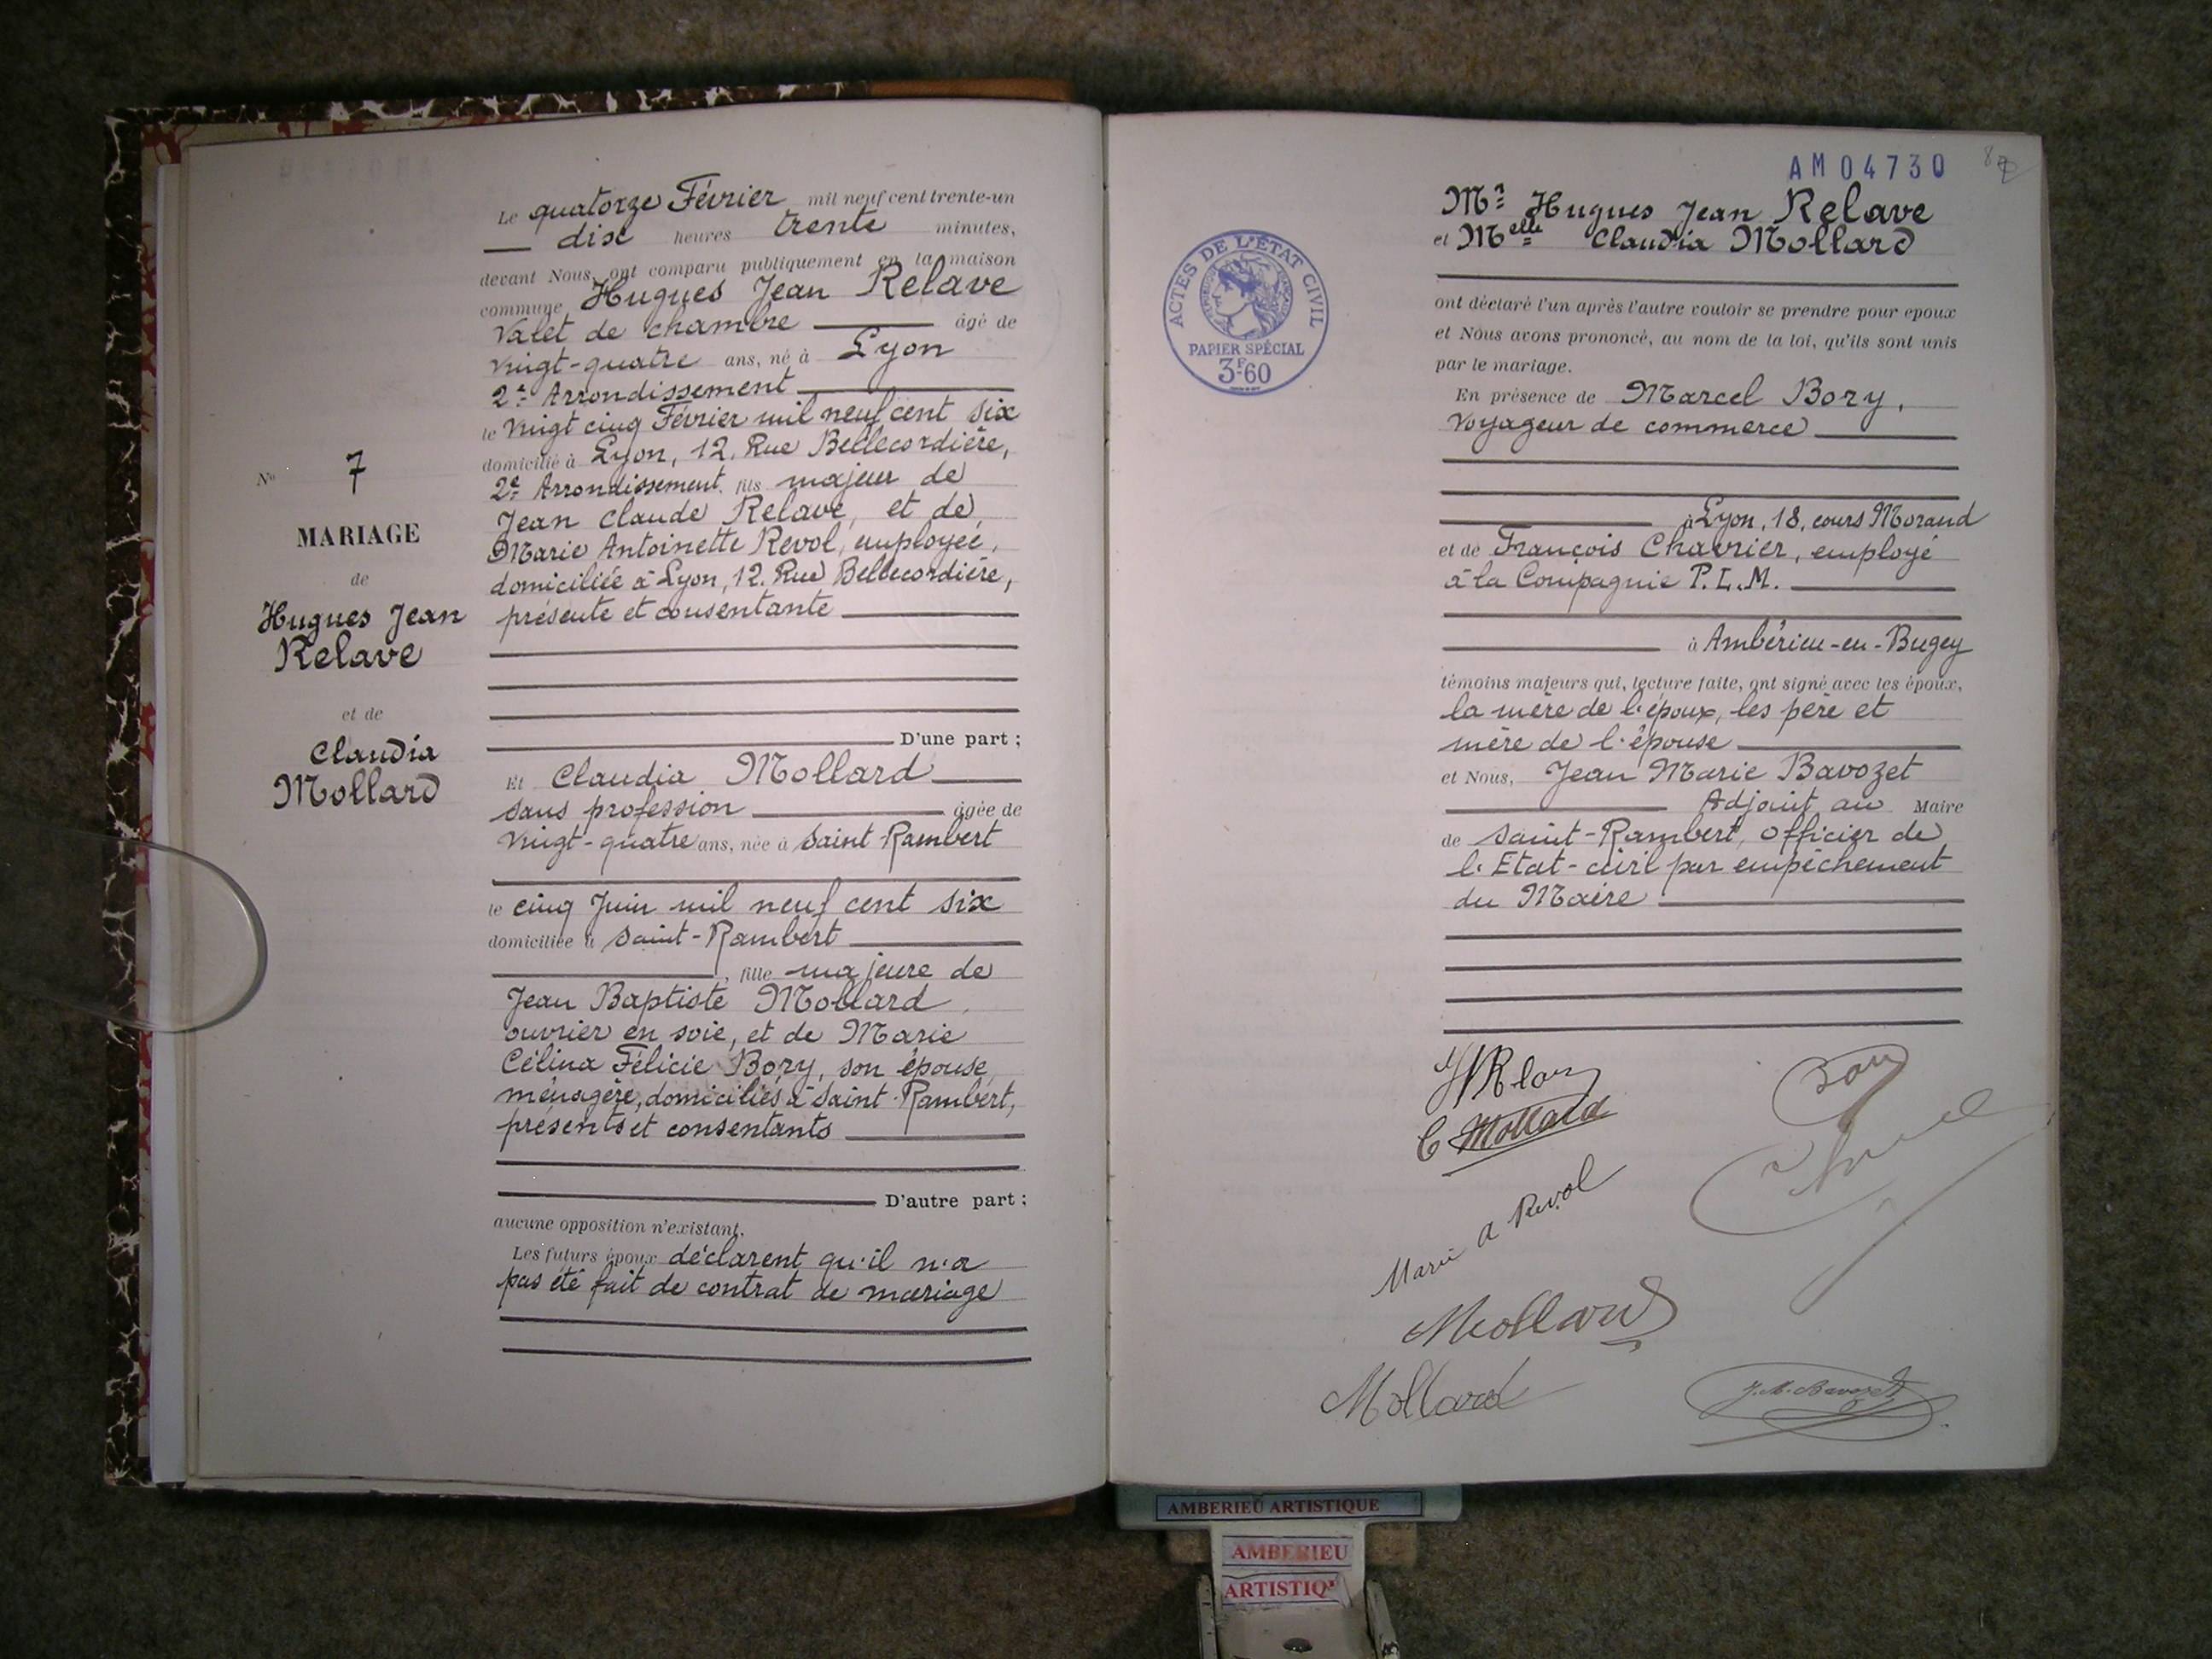 Le quatorze Février mil neuf cent trente-un
dix heures trente minutes,
devant Nous, ont comparu publiquement en la maison
commune Hugues Jean Relave
Valet de chambre âgé de
vingt-quatre ans, né à Lyon
2e Arrondissement
le vingt cinq Février mil neuf cent six
domicilié à Lyon, 12. Rue Bellecordière,
2e Arrondissement, fils majeur de
Jean Claude Relave, et de
Marie Antoinette Revol, employée,
domiciliée à Lyon, 12. Rue Bellecordière,
présente et consentante
D'une part ;
Et Claudia Mollard
sans profession âgée de
vingt-quatre ans, née à Saint-Rambert
le cinq Juin mil neuf cent six
domiciliée à Saint-Rambert
, fille majeure de
Jean Baptiste Mollard,
ouvrier en soie, et de Marie
Célina Félicie Bory, son épouse,
ménagère, domiciliés à Saint-Rambert,
présents et consentants
D'autre part ;
aucune opposition n'existant.
Les futurs époux déclarent qu'il n'a
pas été fait de contrat de mariage
No 7
MARIAGE
de
Hugues Jean
Relave
et de
Claudia
Mollard
AM04730
Mr Hugues Jean Relave
et Melle Claudia Mollard
ont déclaré l'un après l'autre vouloir se prendre pour époux
et Nous avons prononcé, au nom de la loi, qu'ils sont unis
par le mariage.
En présence de Marcel Bory,
voyageur de commerce
à Lyon, 18, cours Morand
et de François Chavrier, employé
à la Compagnie P.L.M.
à Ambérieu-en-Bugey
témoins majeurs qui, lecture faite, ont signé avec les époux,
la mère de l'époux, les père et
mère de l'épouse
et Nous, Jean Marie Bavozet
Adjoint au Maire
de Saint-Rambert, Officier de
l'Etat-civil par empêchement
du Maire
ACTES DE L'ÉTAT CIVIL
PAPIER SPÉCIAL
3F60
C Mollard
Marie A Revol
Mollard
Mollard
J.M. Bavozet
AMBERIEU ARTISTIQUE
AMBERIEU
ARTISTIQ